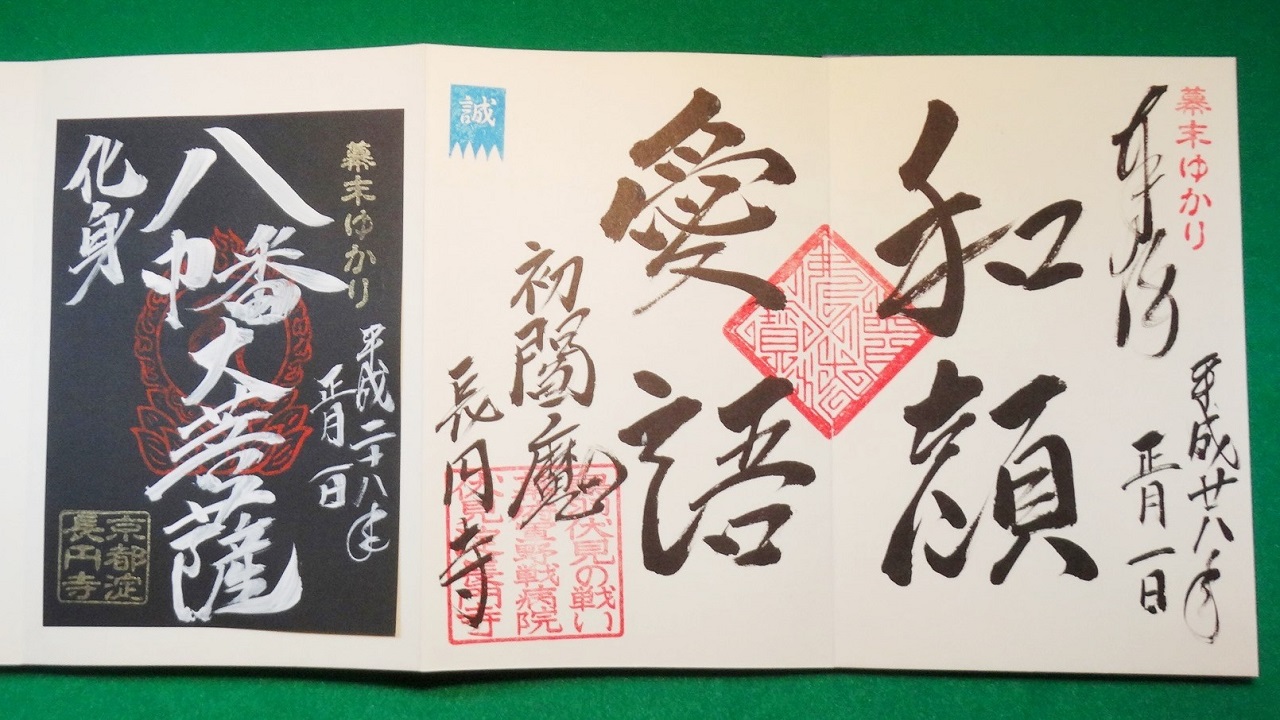 幕末ゆかり
奉拝
平成廿八年
正月一日
和顔
愛語
誠
初閻魔
長円寺
伏見の戦い
野戦病院
幕末ゆかり
平成二十八年
正月一日
八幡大菩薩
化身
京都淀
長円寺